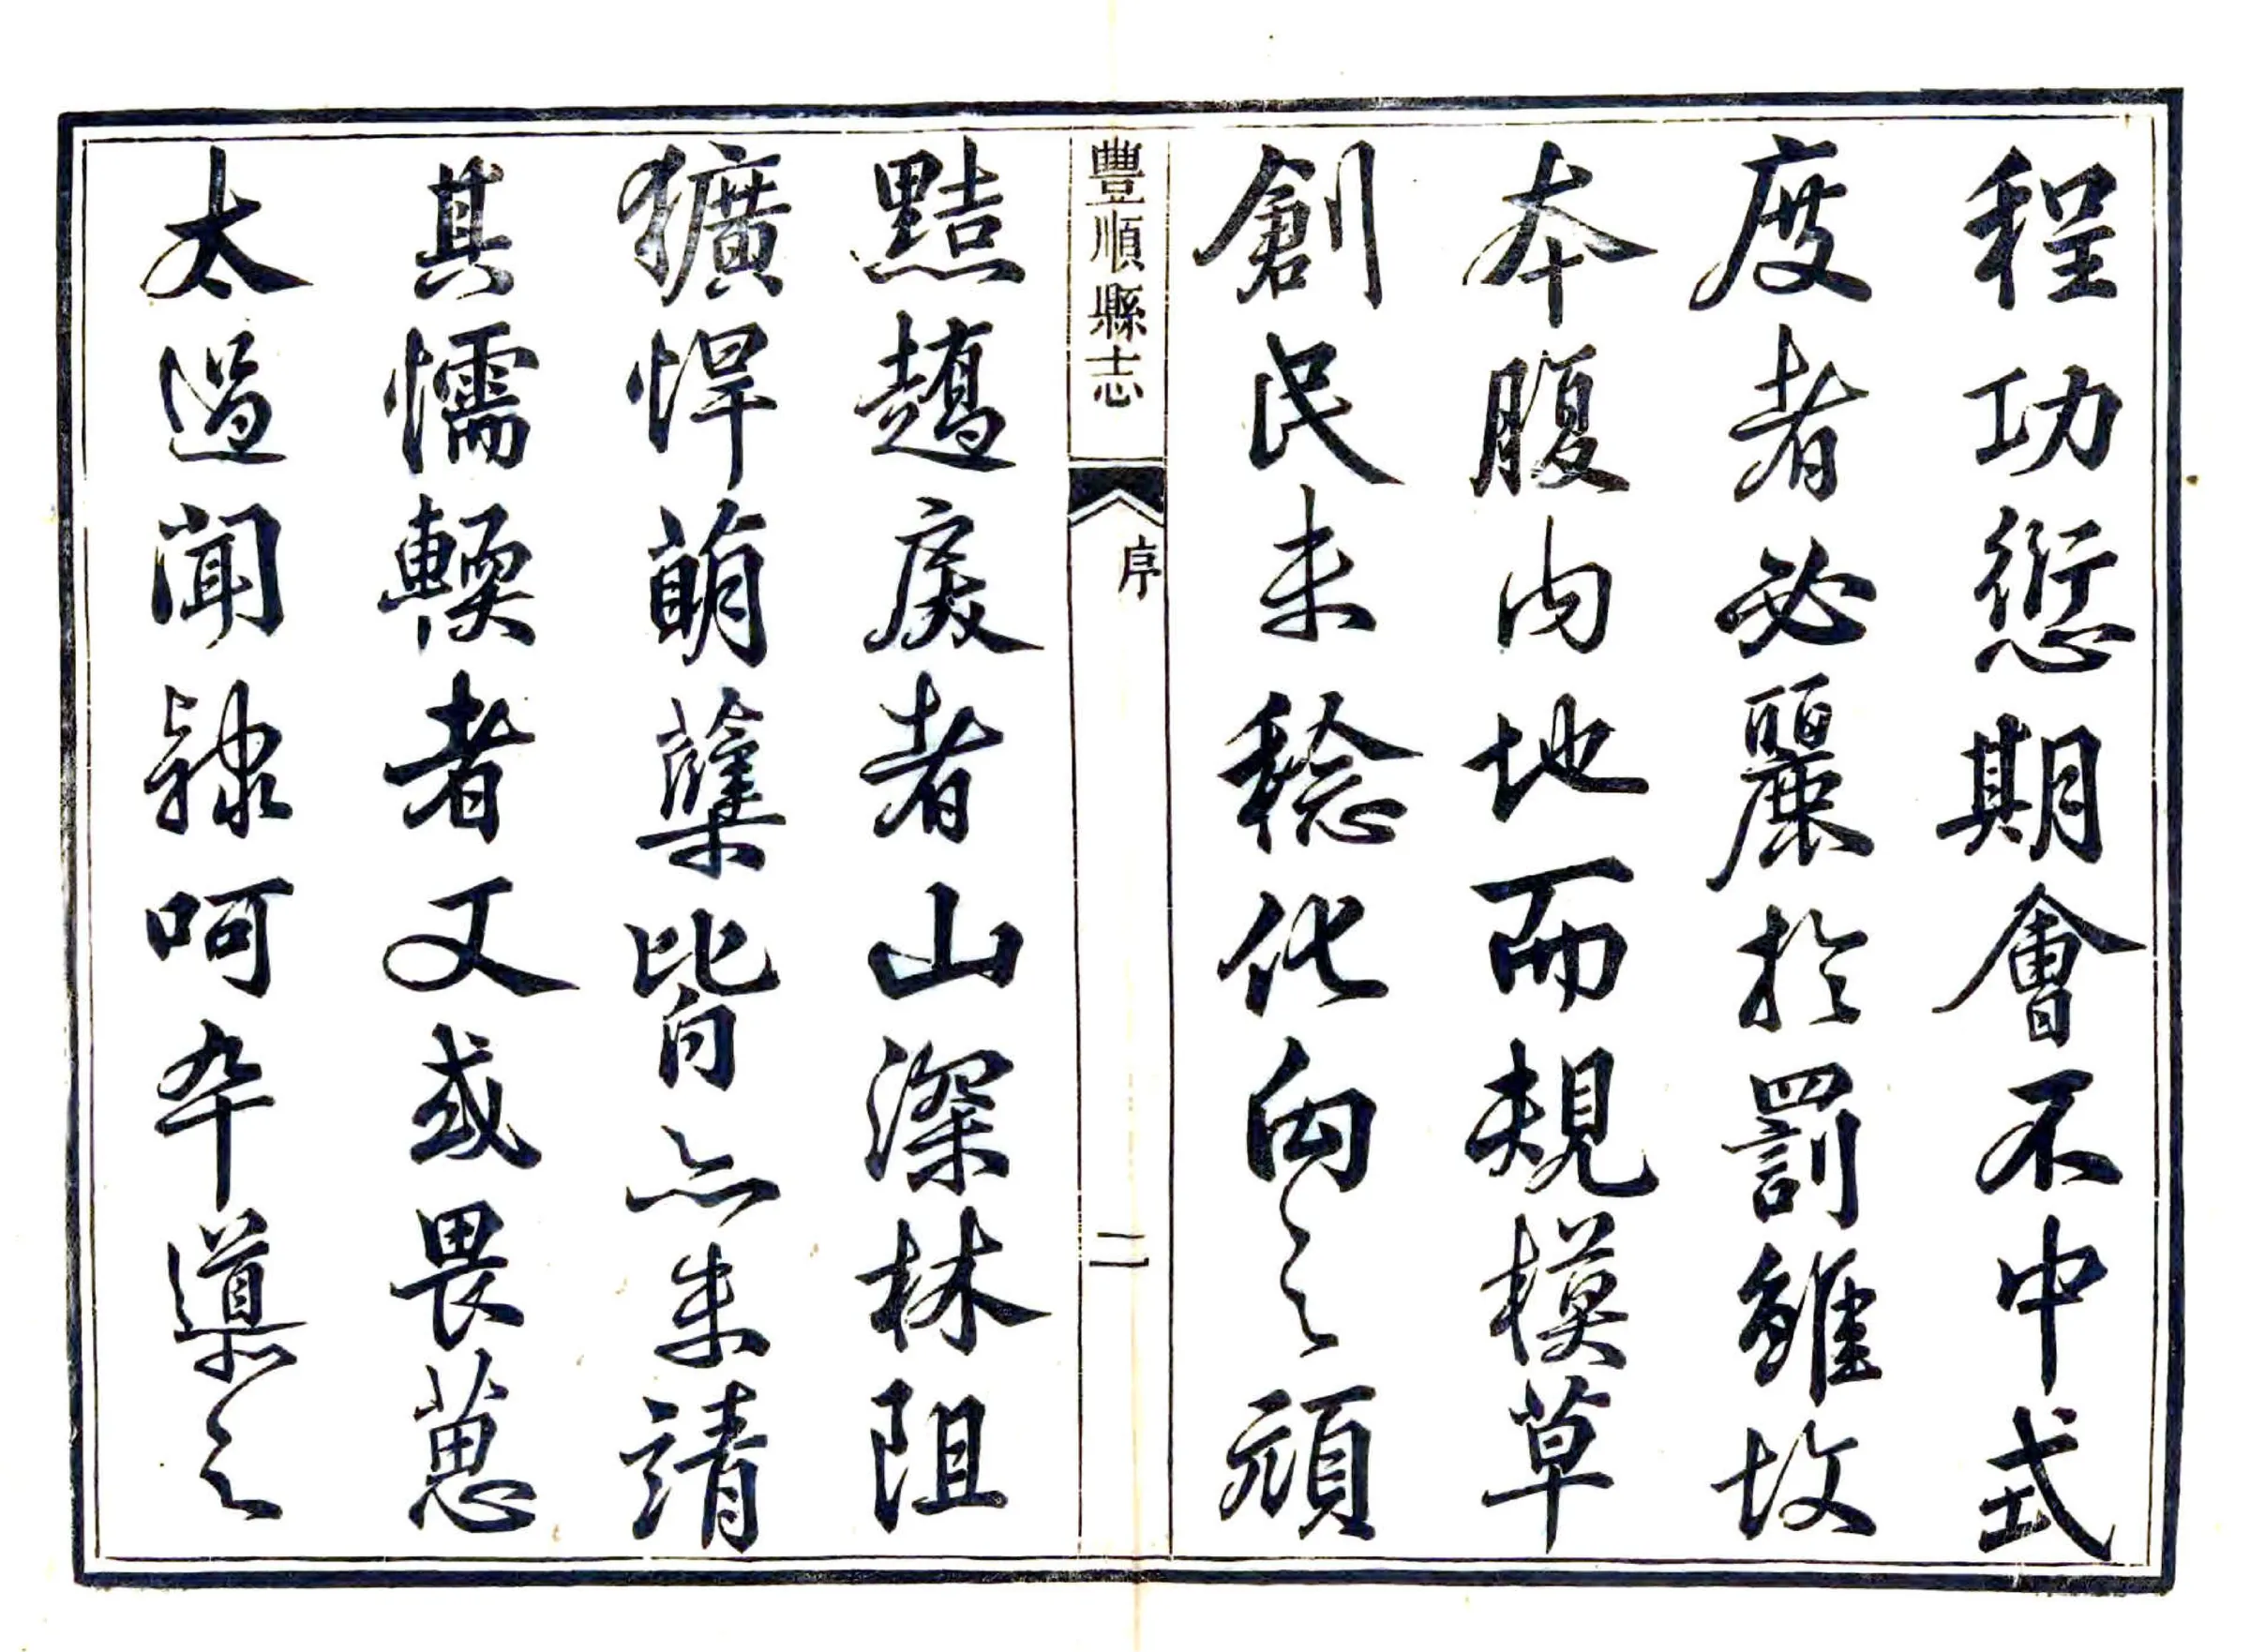 程功愆期會不中式
度者必麗於罰雖故
本腹内地而規模草
創民未稔化向之頑
豐順縣志 序 二
黠趫戾者山深林阻
獷悍萌蘖皆亦未靖
其懦輭者又或畏葸
太過聞隸呵卒導之